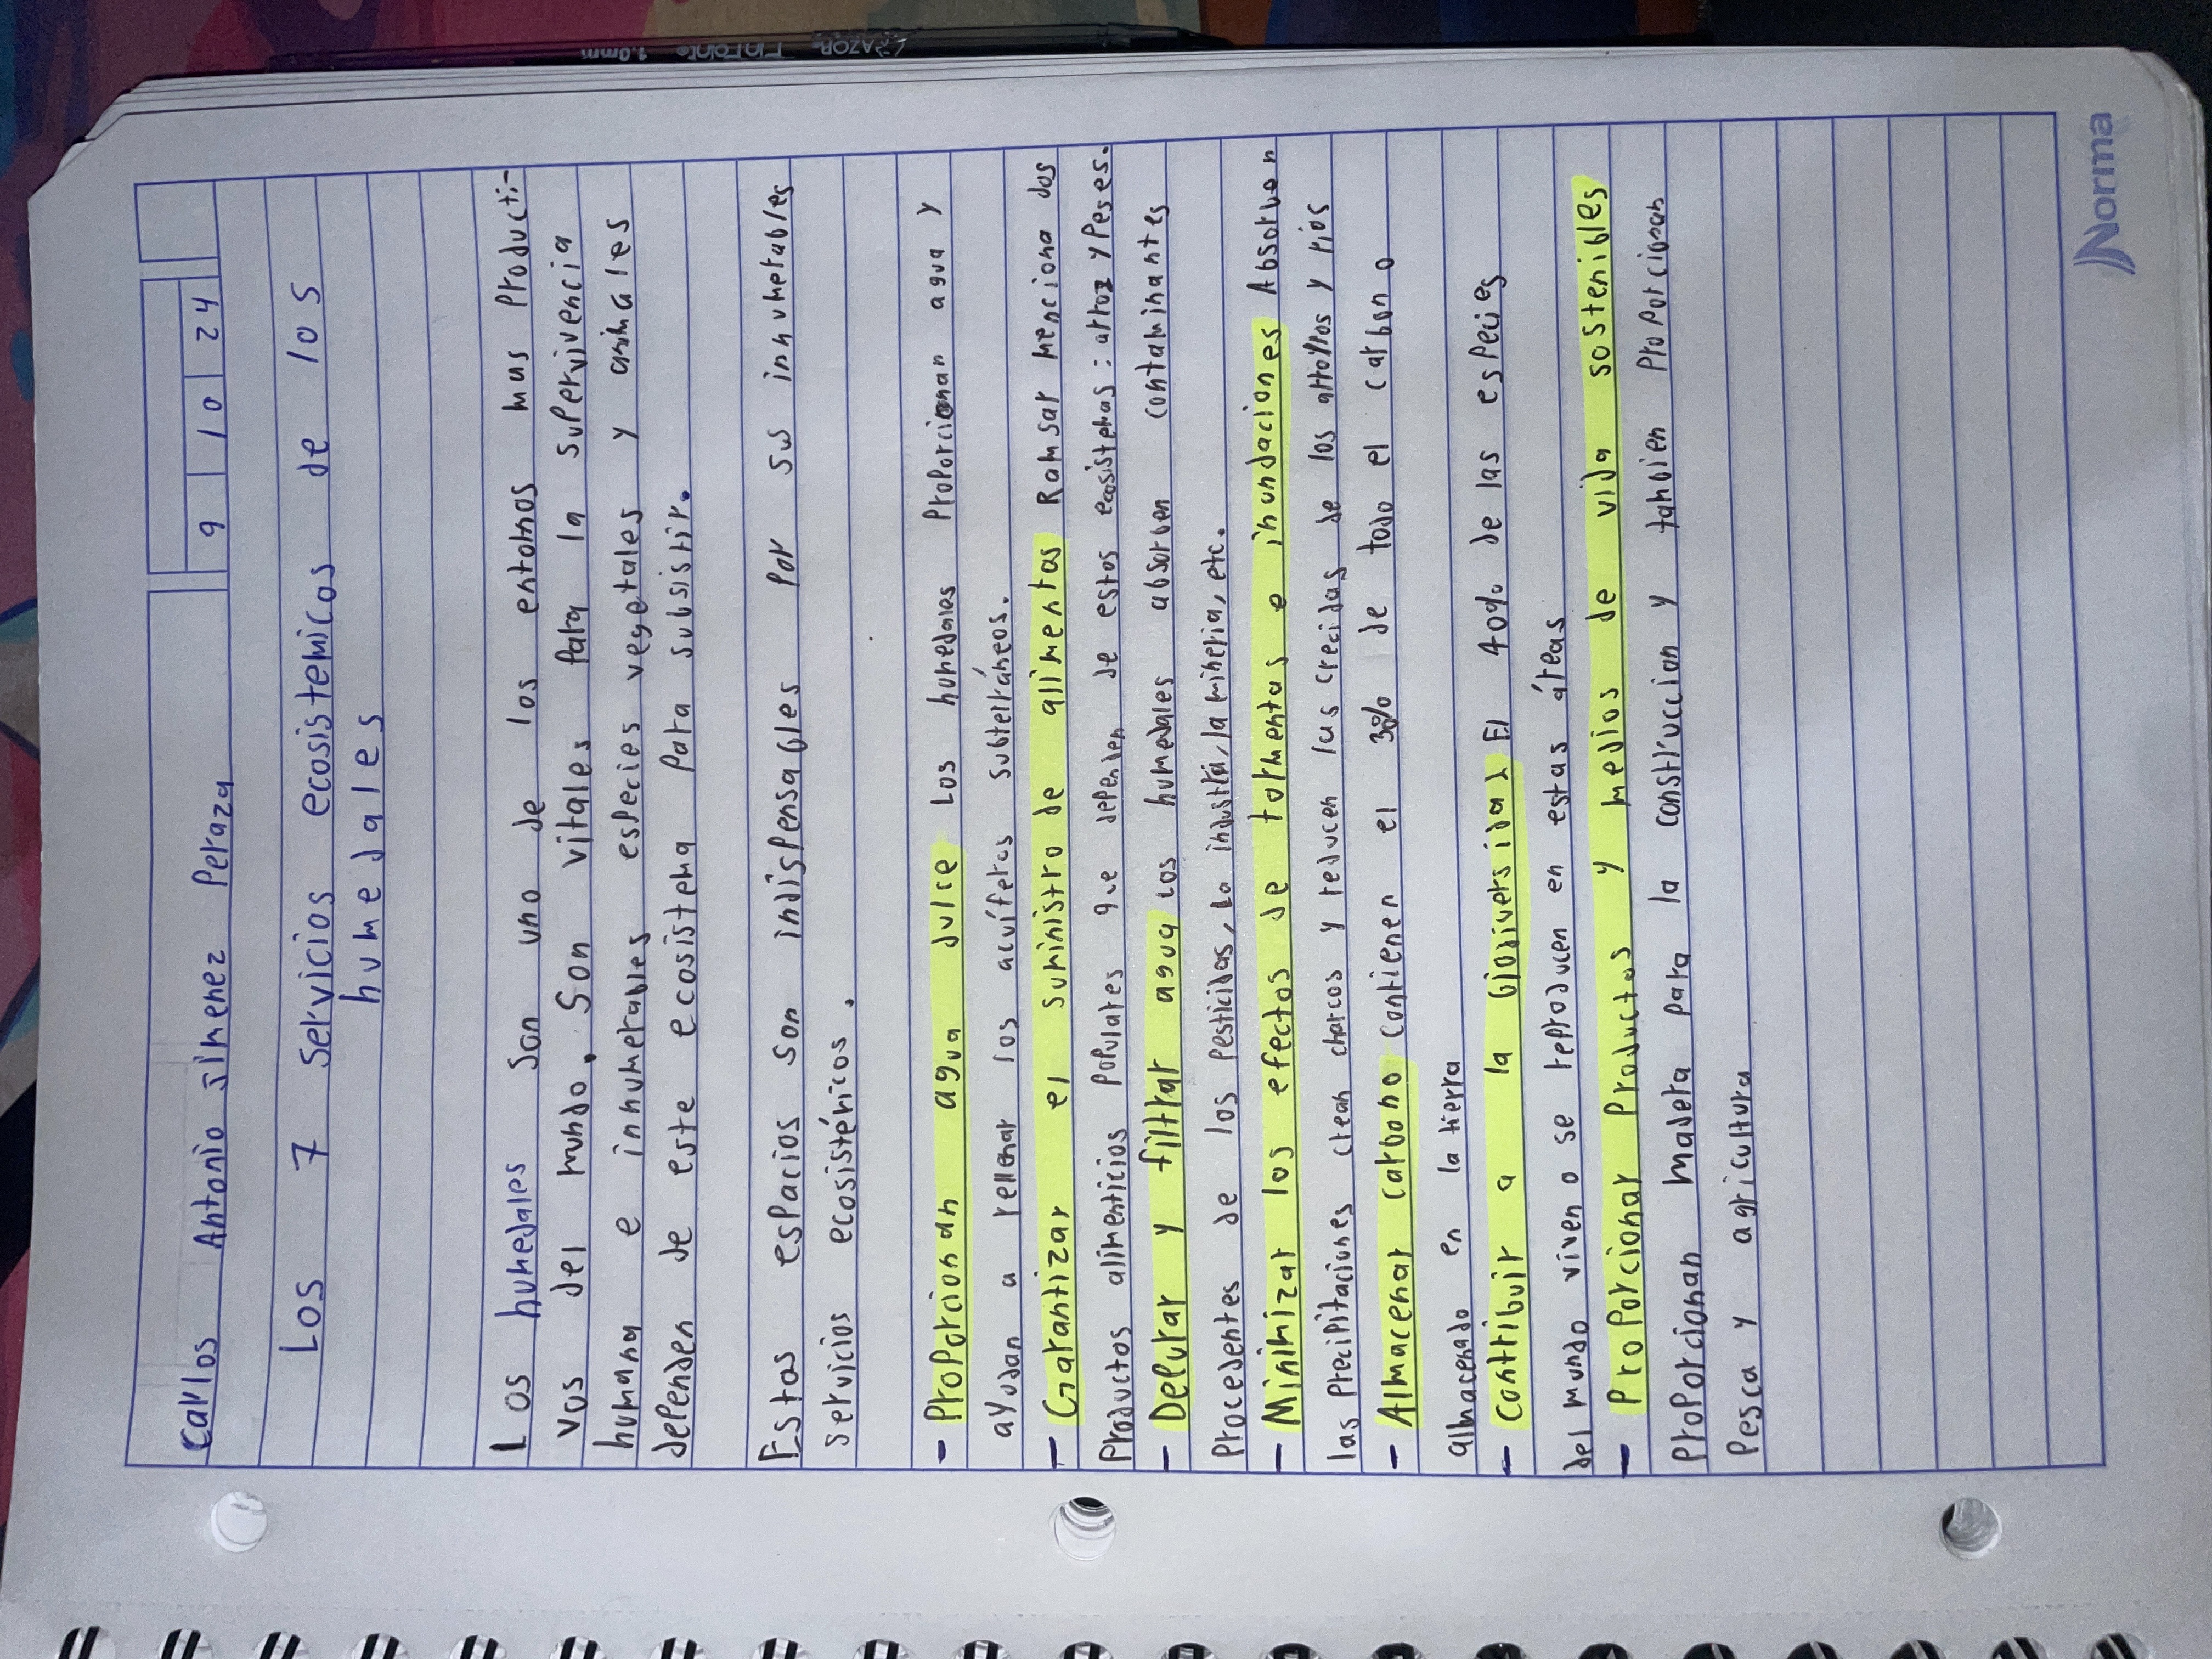 Carlos Antonio Jimenez Peraza 9 10 24
Los 7 servicios ecosistemicos de los
humedales
Los humedales son uno de los entornos mas producti-
vos del mundo. Son vitales para la supervivencia
humana e innumerables especies vegetales y animales
dependen de este ecosistema para subsistir.
Estos espacios son indispensables por sus innumerables
servicios ecosistémicos.
- Proporcionan agua dulce Los humedales Proporcionan agua y
ayudan a rellenar los acuíferos subterráneos.
- Garantizar el suministro de alimentos Ramsar menciona dos
Productos alimenticios populares que dependen de estos ecosistemas: arroz y Peses.
- Depurar y filtrar agua Los humedales absorben contaminantes
Procedentes de los pesticidas, la industria, la mineria, etc.
- Minimizar los efectos de tormentas e inundaciones Absorben
las precipitaciones crean charcos y reducen las crecidas de los arrollos y rios
- Almacenar carbono Contienen el 30% de todo el carbono
almacenado en la tierra
- Contribuir a la biodiversidad El 40% de las especies
del mundo viven o se reproducen en estas áreas
- Proporcionar Productos y medios de vida sostenibles
Proporcionan madera para la construccion y tambien Proporcionan
Pesca y agricultura
Norma
RAZOR FinePoint 1.0mm